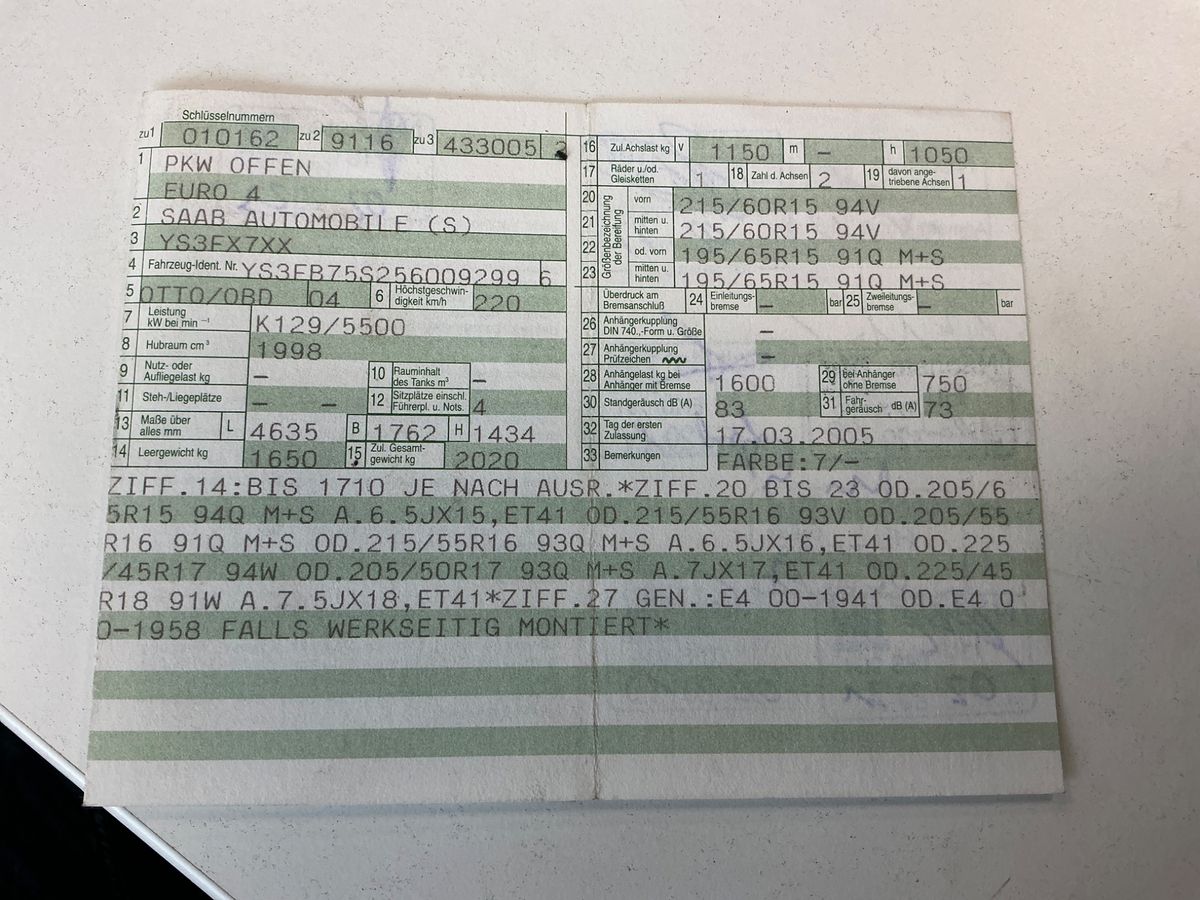 Schlüsselnummern
zu1 010162 zu 2 9116 zu 3 433005
1 PKW OFFEN
EURO 4
2 SAAB AUTOMOBILE (S)
3 YS3FX7XX
4 Fahrzeug-Ident. Nr. YS3FB75S256009299 6
5 OTTO/OBD 04 6 Höchstgeschwin-digkeit km/h 220
7 Leistung kW bei min⁻¹ K129/5500
8 Hubraum cm³ 1998
9 Nutz- oder Aufliegelast kg – 10 Rauminhalt des Tanks m³ –
11 Steh-/Liegeplätze – – 12 Sitzplätze einschl. Führerpl. u. Nots. 4
13 Maße über alles mm L 4635 B 1762 H 1434
14 Leergewicht kg 1650 15 Zul. Gesamt-gewicht kg 2020
16 Zul.Achslast kg V 1150 m – h 1050
17 Räder u./od. Gleisketten 1 18 Zahl d. Achsen 2 19 davon ange-triebene Achsen 1
Größenbezeichnung der Bereifung
20 vorn 215/60R15 94V
21 mitten u. hinten 215/60R15 94V
22 od. vorn 195/65R15 91Q M+S
23 mitten u. hinten 195/65R15 91Q M+S
Überdruck am Bremsanschluß 24 Einleitungs-bremse – bar 25 Zweileitungs-bremse – bar
26 Anhängerkupplung DIN 740.,-Form u. Größe –
27 Anhängerkupplung Prüfzeichen –
28 Anhängelast kg bei Anhänger mit Bremse 1600 29 bei Anhänger ohne Bremse 750
30 Standgeräusch dB (A) 83 31 Fahr-geräusch dB (A) 73
32 Tag der ersten Zulassung 17.03.2005
33 Bemerkungen FARBE:7/–
ZIFF.14:BIS 1710 JE NACH AUSR.*ZIFF.20 BIS 23 OD.205/6
5R15 94Q M+S A.6.5JX15,ET41 OD.215/55R16 93V OD.205/55
R16 91Q M+S OD.215/55R16 93Q M+S A.6.5JX16,ET41 OD.225
/45R17 94W OD.205/50R17 93Q M+S A.7JX17,ET41 OD.225/45
R18 91W A.7.5JX18,ET41*ZIFF.27 GEN.:E4 00-1941 OD.E4 0
0-1958 FALLS WERKSEITIG MONTIERT*